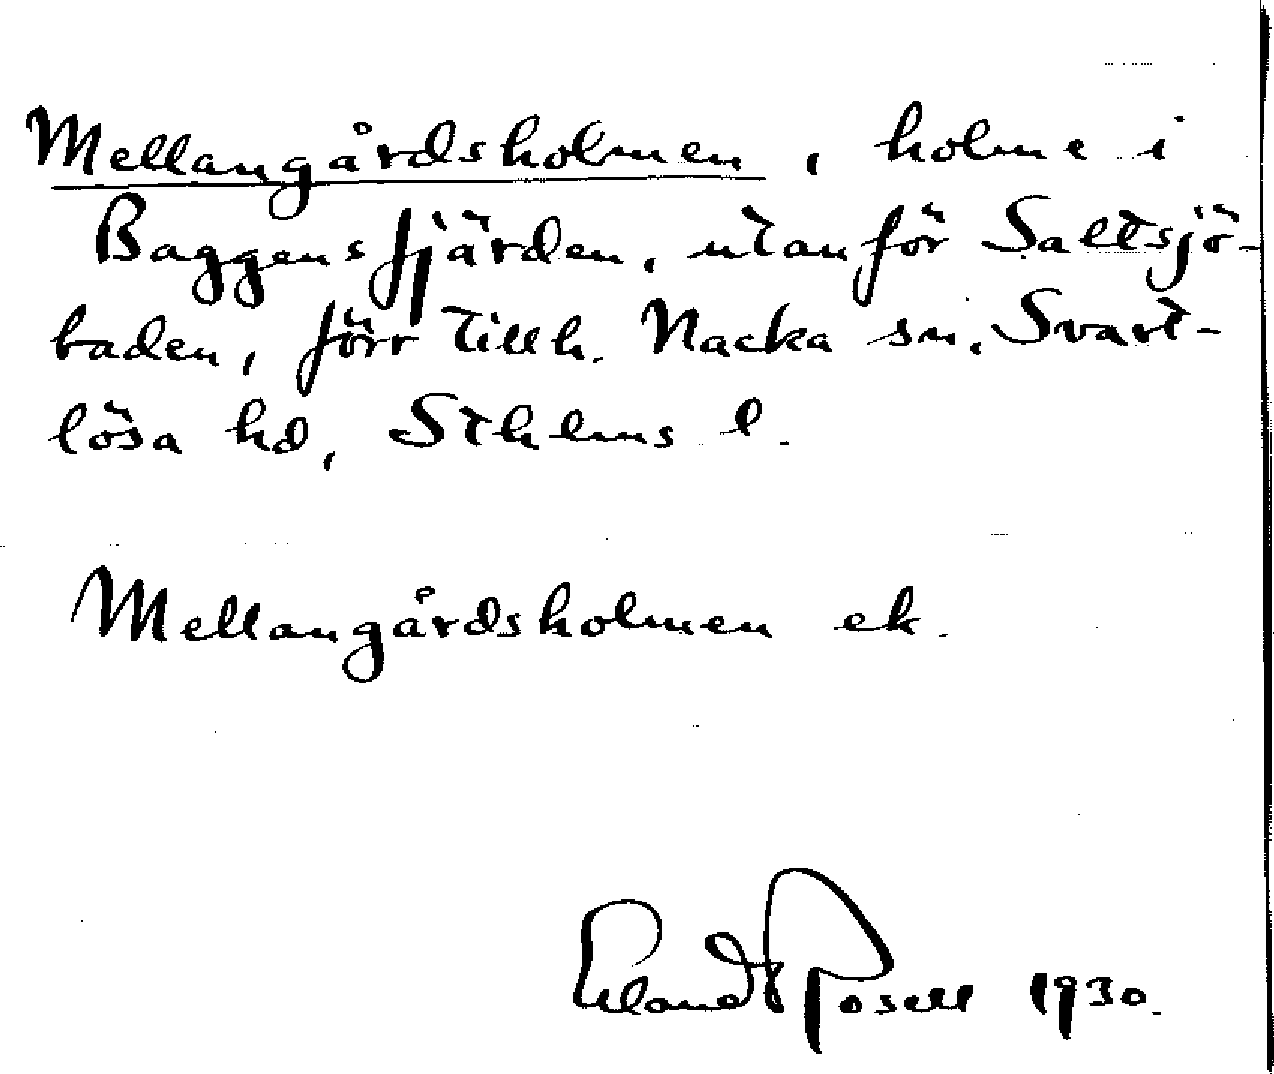 Mellangårdsholmen, holme i
Baggensfjärden, utanför Saltsjö-
baden, förr tillh. Nacka sn. Svart-
lösa hd, Sthlms l.
Mellangårdsholmen ek.
Erland Rosell 1930.